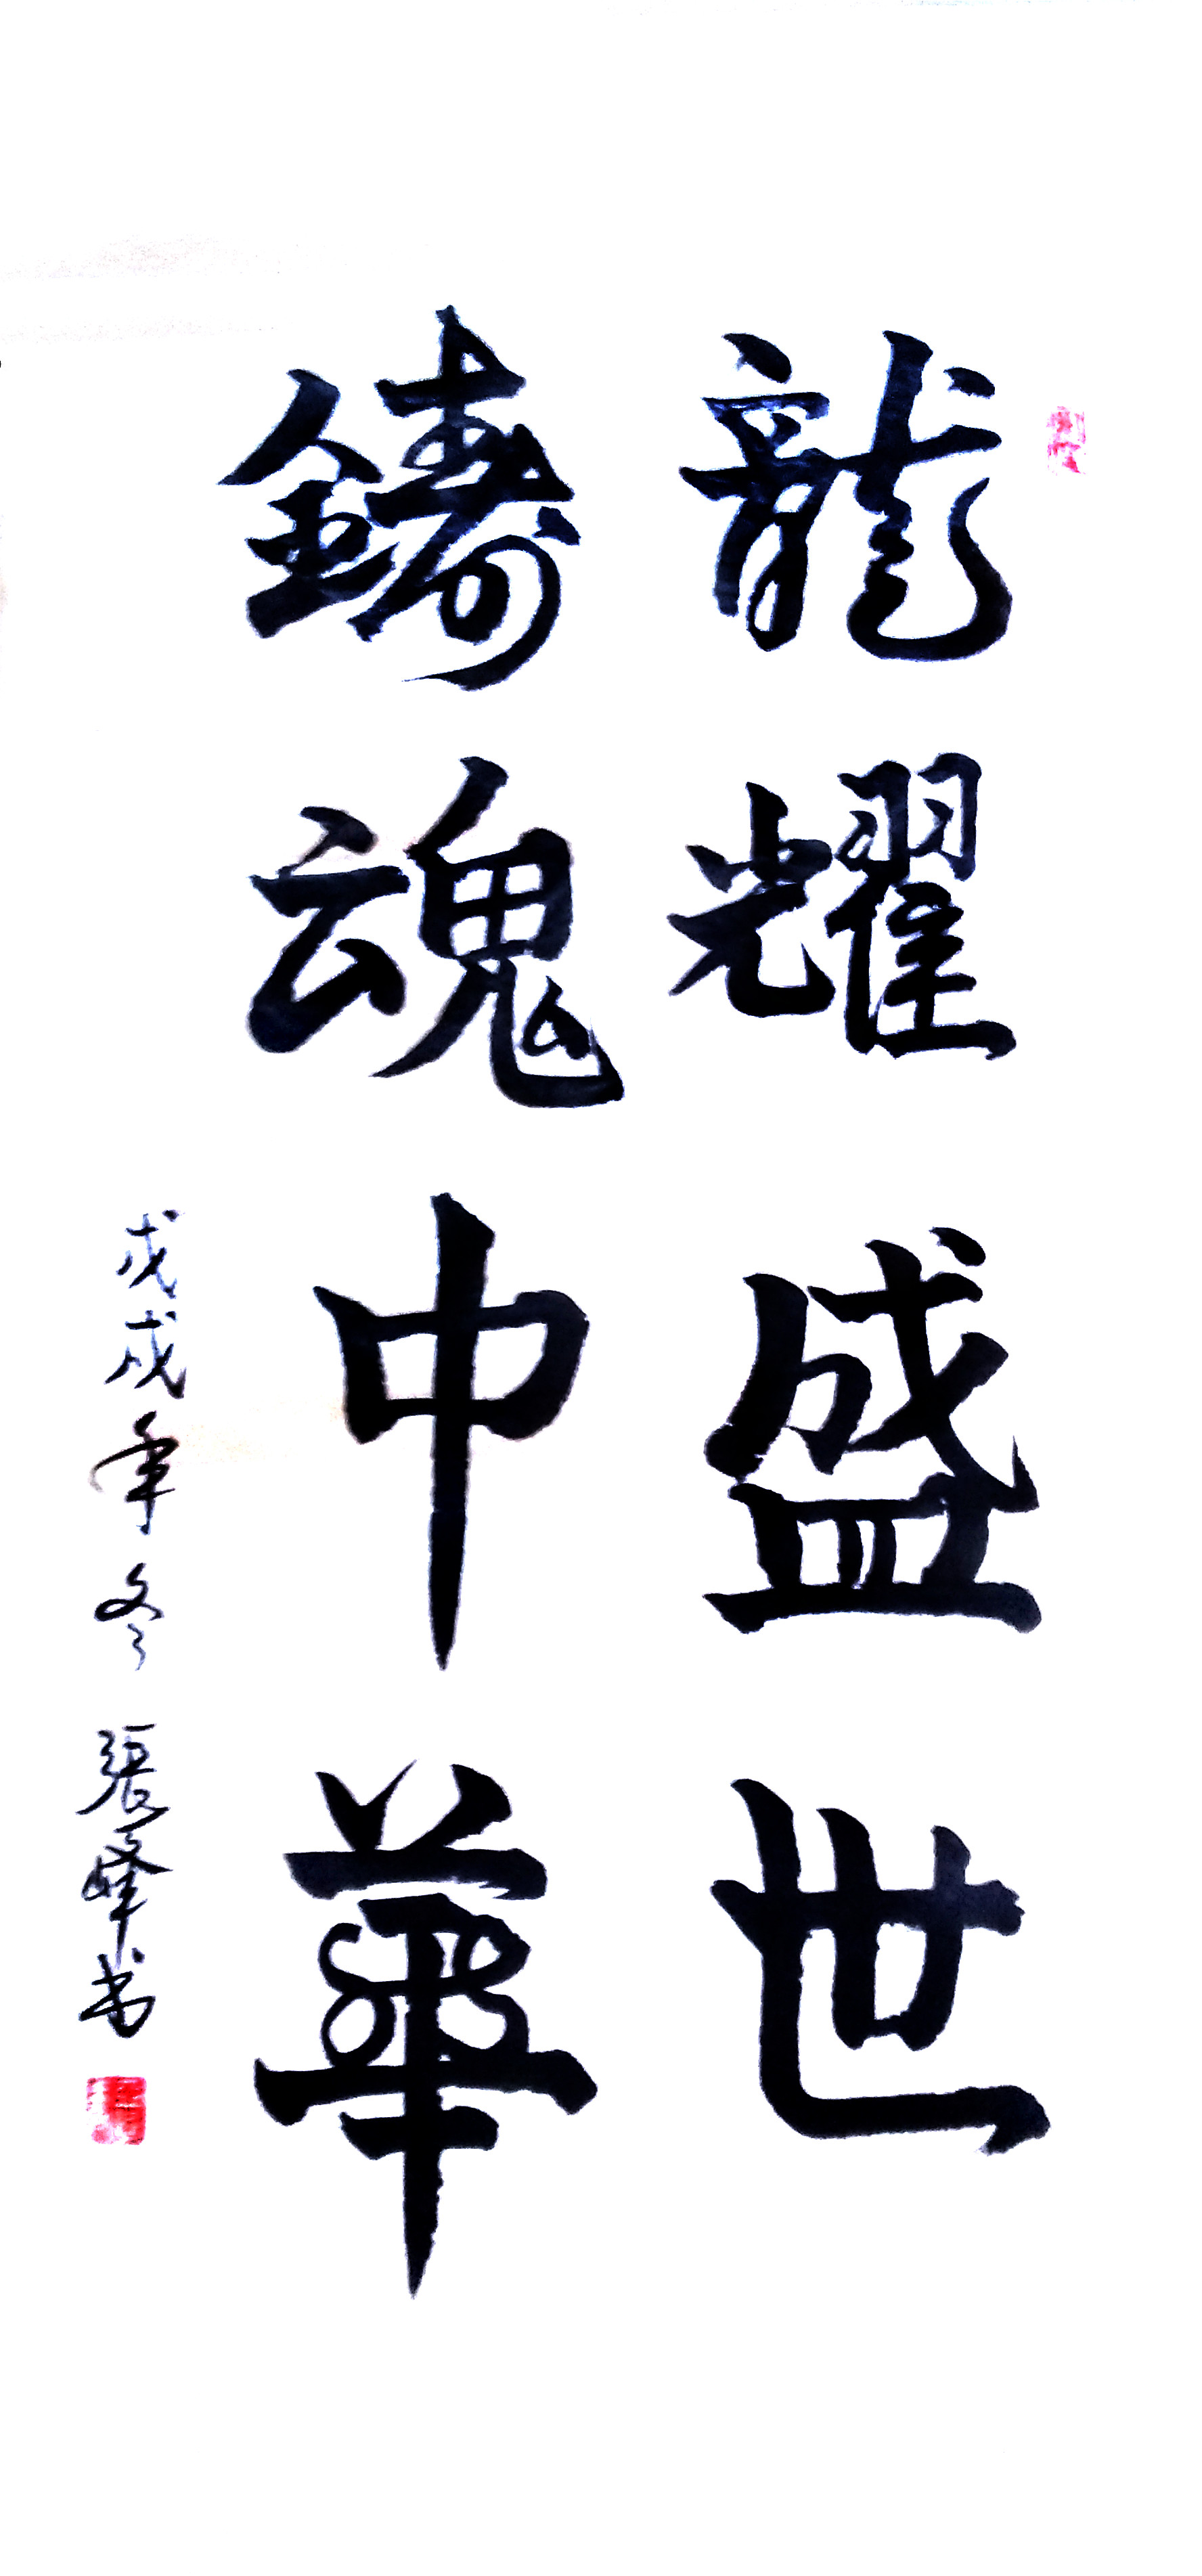 龍耀盛世
鑄魂中華
戊戌年冬 張峰书